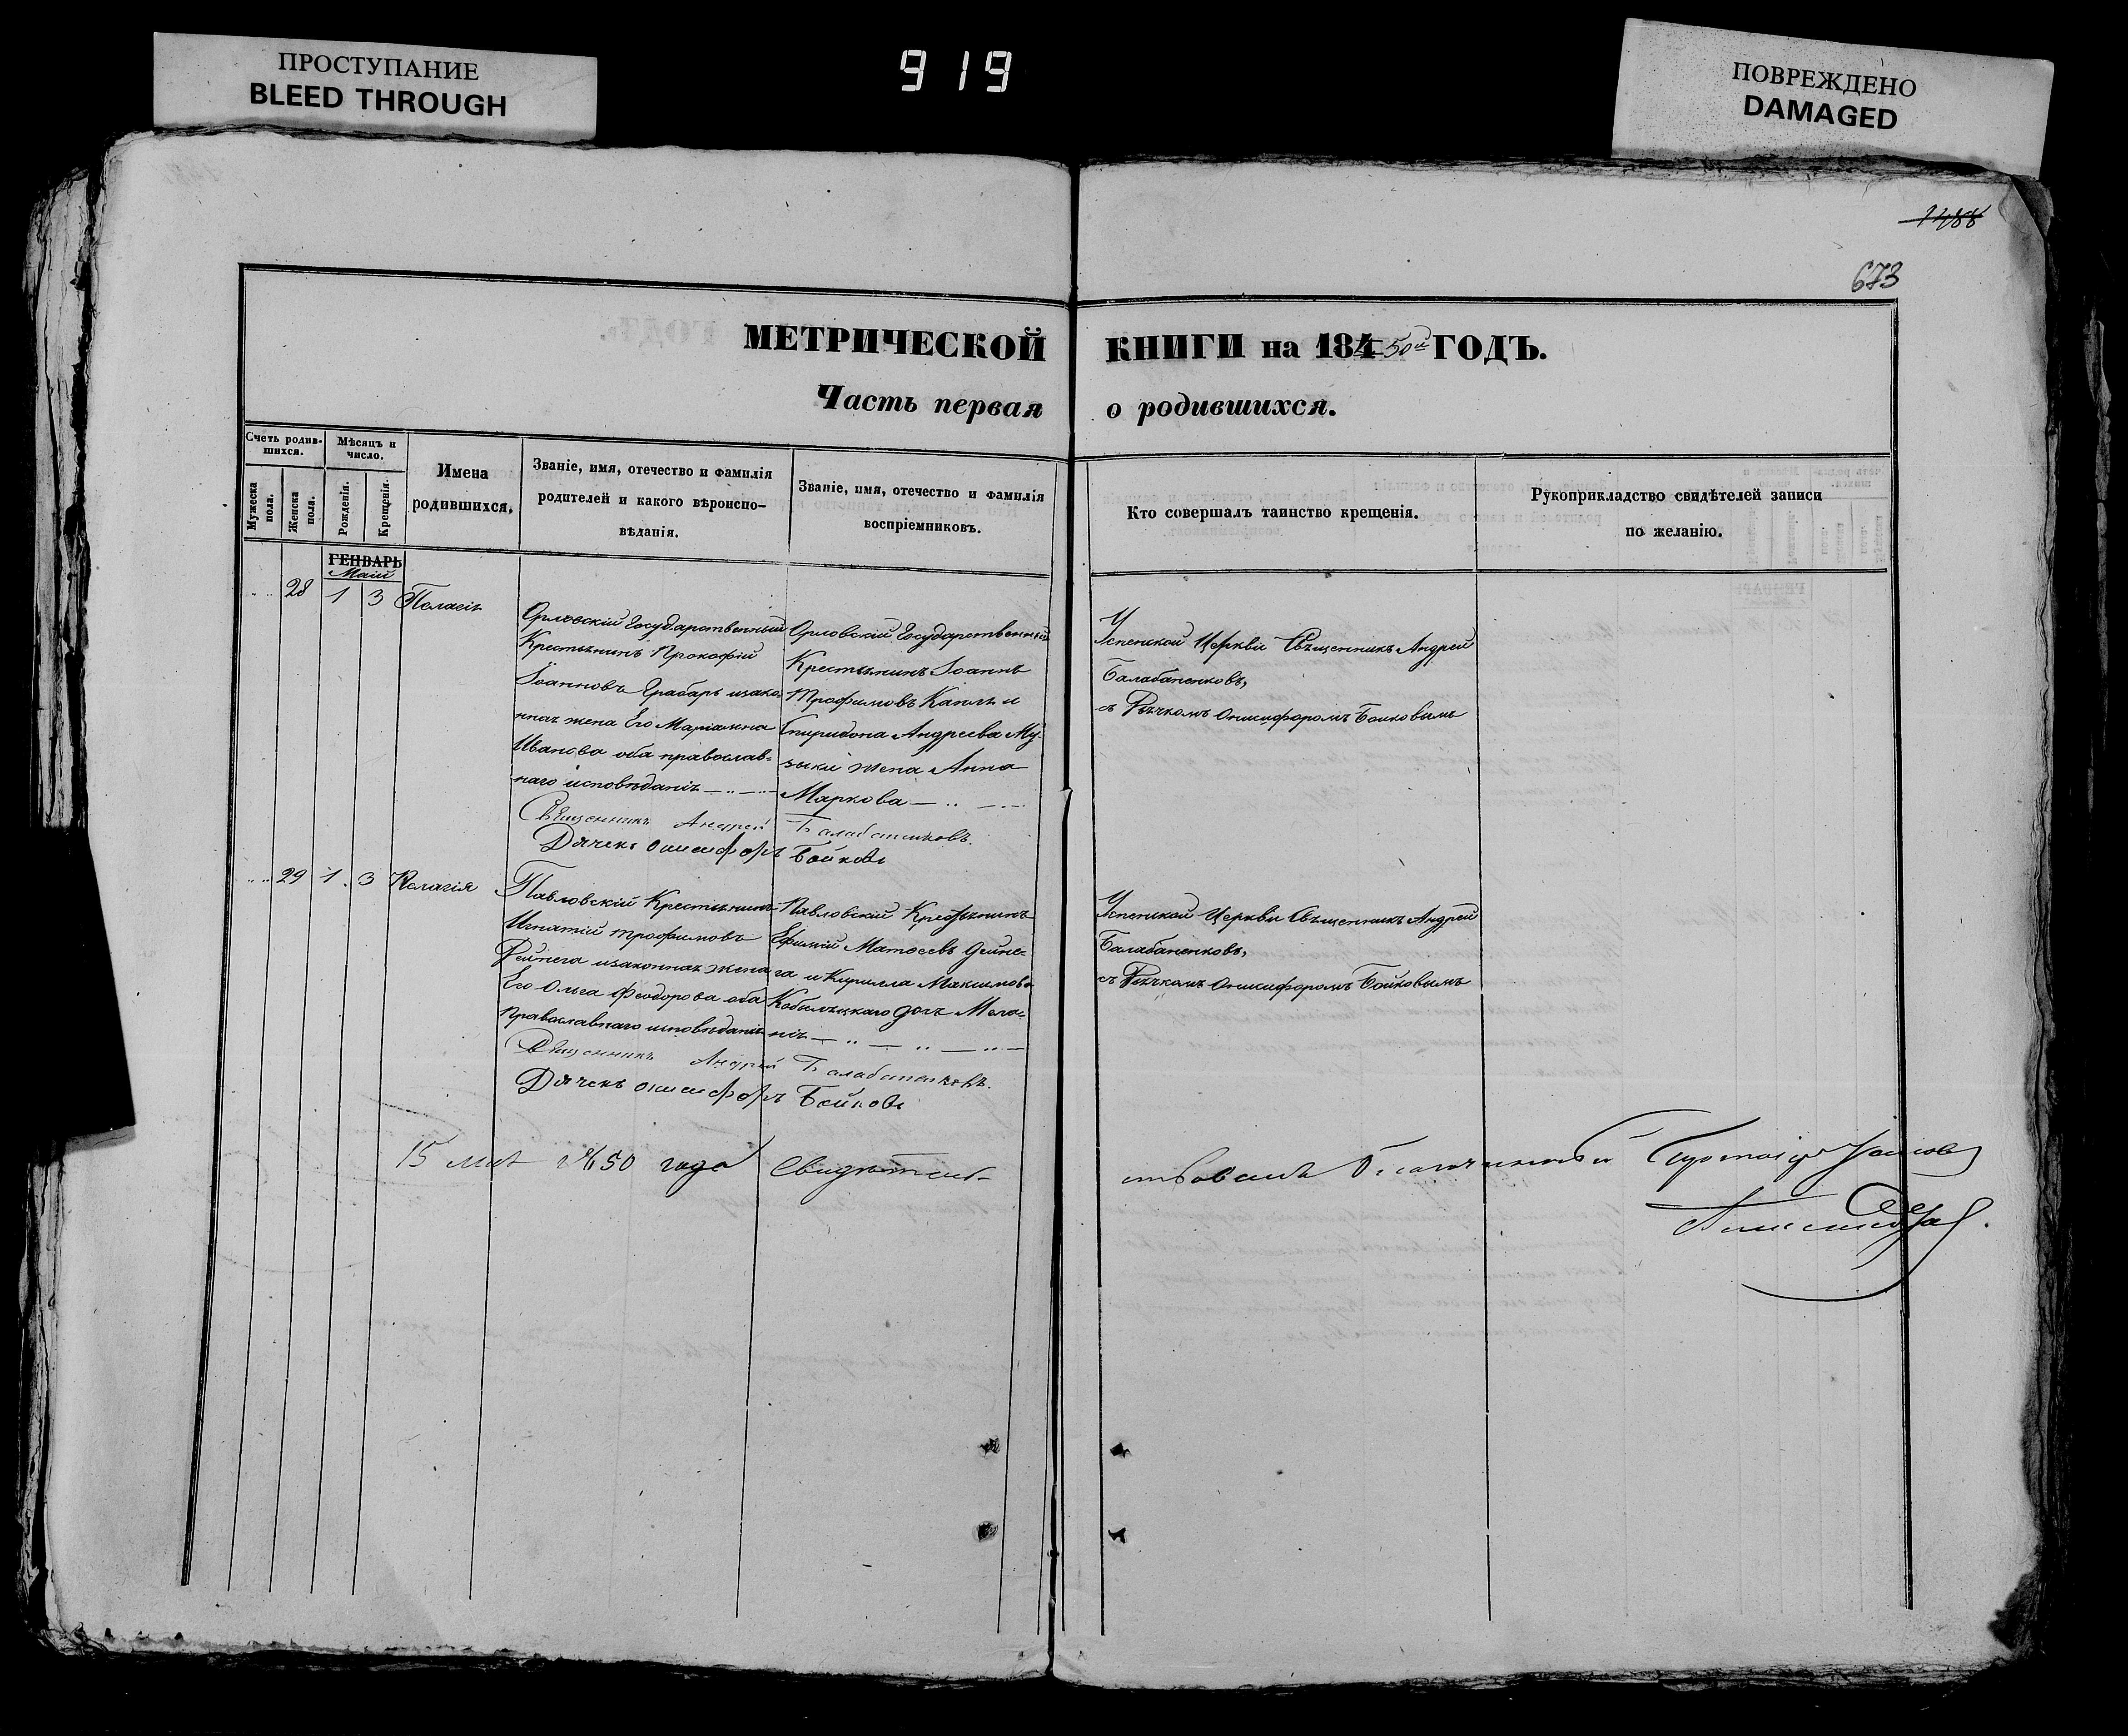 ПРОСТУПАНИЕ
BLEED THROUGH
919
ПОВРЕЖДЕНО
DAMAGED
1488
673
МЕТРИЧЕСКОЙ КНИГИ на 184 50й ГОДЪ.
Часть первая о родившихся.
Счетъ родив-
шихся.
Мужеска пола.
Женска пола.
Мѣсяцъ и
число.
Рожденія.
Крещенія.
Имена
родившихся.
Званіе, имя, отечество и фамилія
родителей и какого вѣроиспо-
вѣданія.
Званіе, имя, отечество и фамилія
воспріемниковъ.
Кто совершалъ таинство крещенія.
Рукоприкладство свидѣтелей записи
по желанію.
ГЕНВАРЬ
Маій
28 1 3 Пелагія
Орловскій Государственный
Крестьянинъ Прокофій
Іоанновъ Грабарь изако-
нная жена Его Маріанна
Иванова оба православ-
наго исповѣданія
Орловскій Государственный
Крестьянинъ Іоаннъ
Трофимовъ и
Спиридона Андреева Му-
зыки жена Анна
Маркова
Успенской Церкви Священникъ Андрей
Балабаненковъ,
съ Дячкомъ Онисифоромъ Бойковымъ
Священникъ Андрей Балабаненковъ.
Дячекъ Онисифоръ Бойковъ
29 1 3 Пелагія
Павловскій Крестьянинъ
Игнатій Трофимовъ
Дейнега изаконная жена
Его Ольга Феодорова оба
Православнаго исповѣданія
Павловскій Крестьянинъ
Ефимій Матвеевъ Дейне-
га и Кирилла Максимова
Кобыляцкаго дочь Мела-
нія
Успенской Церкви Священникъ Андрей
Балабаненковъ,
съ Дячкомъ Онисифоромъ Бойковымъ
Священникъ Андрей Балабаненковъ.
Дячекъ Онисифоръ Бойковъ
15 1850 года Свидѣтель-
ствовалъ Благочинный